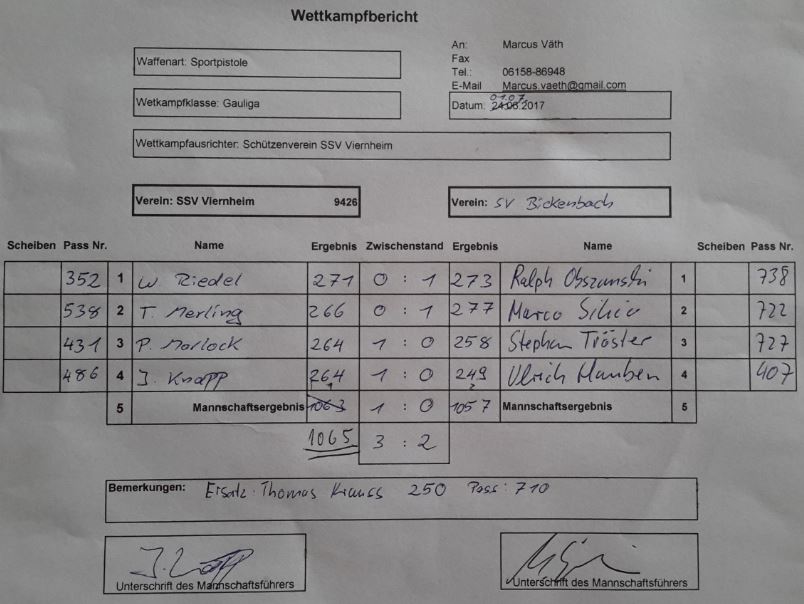 Wettkampfbericht
Waffenart: Sportpistole
Wetkampfklasse: Gauliga
Wettkampfausrichter: Schützenverein SSV Viernheim
An: Marcus Väth
Fax
Tel.: 06158-86948
E-Mail Marcus.vaeth@gmail.com
01.07
Datum: 24.06.2017
Verein: SSV Viernheim 9426
Verein: SV Bickenbach
Scheiben Pass Nr. Name Ergebnis Zwischenstand Ergebnis Name Scheiben Pass Nr.
352 1 W. Riedel 271 0 : 1 273 Ralph 1 738
538 2 T. Merling 266 0 : 1 277 Marco 2 722
431 3 P. Morlock 264 1 : 0 258 Stephan Tröster 3 727
486 4 J. Knapp 264 1 : 0 249 Ulrich 4 407
5 Mannschaftsergebnis 1063 1 : 0 1057 Mannschaftsergebnis 5
1065 3 : 2
Bemerkungen: Ersatz: Thomas Krauss 250 Pass: 710
Unterschrift des Mannschaftsführers
Unterschrift des Mannschaftsführers